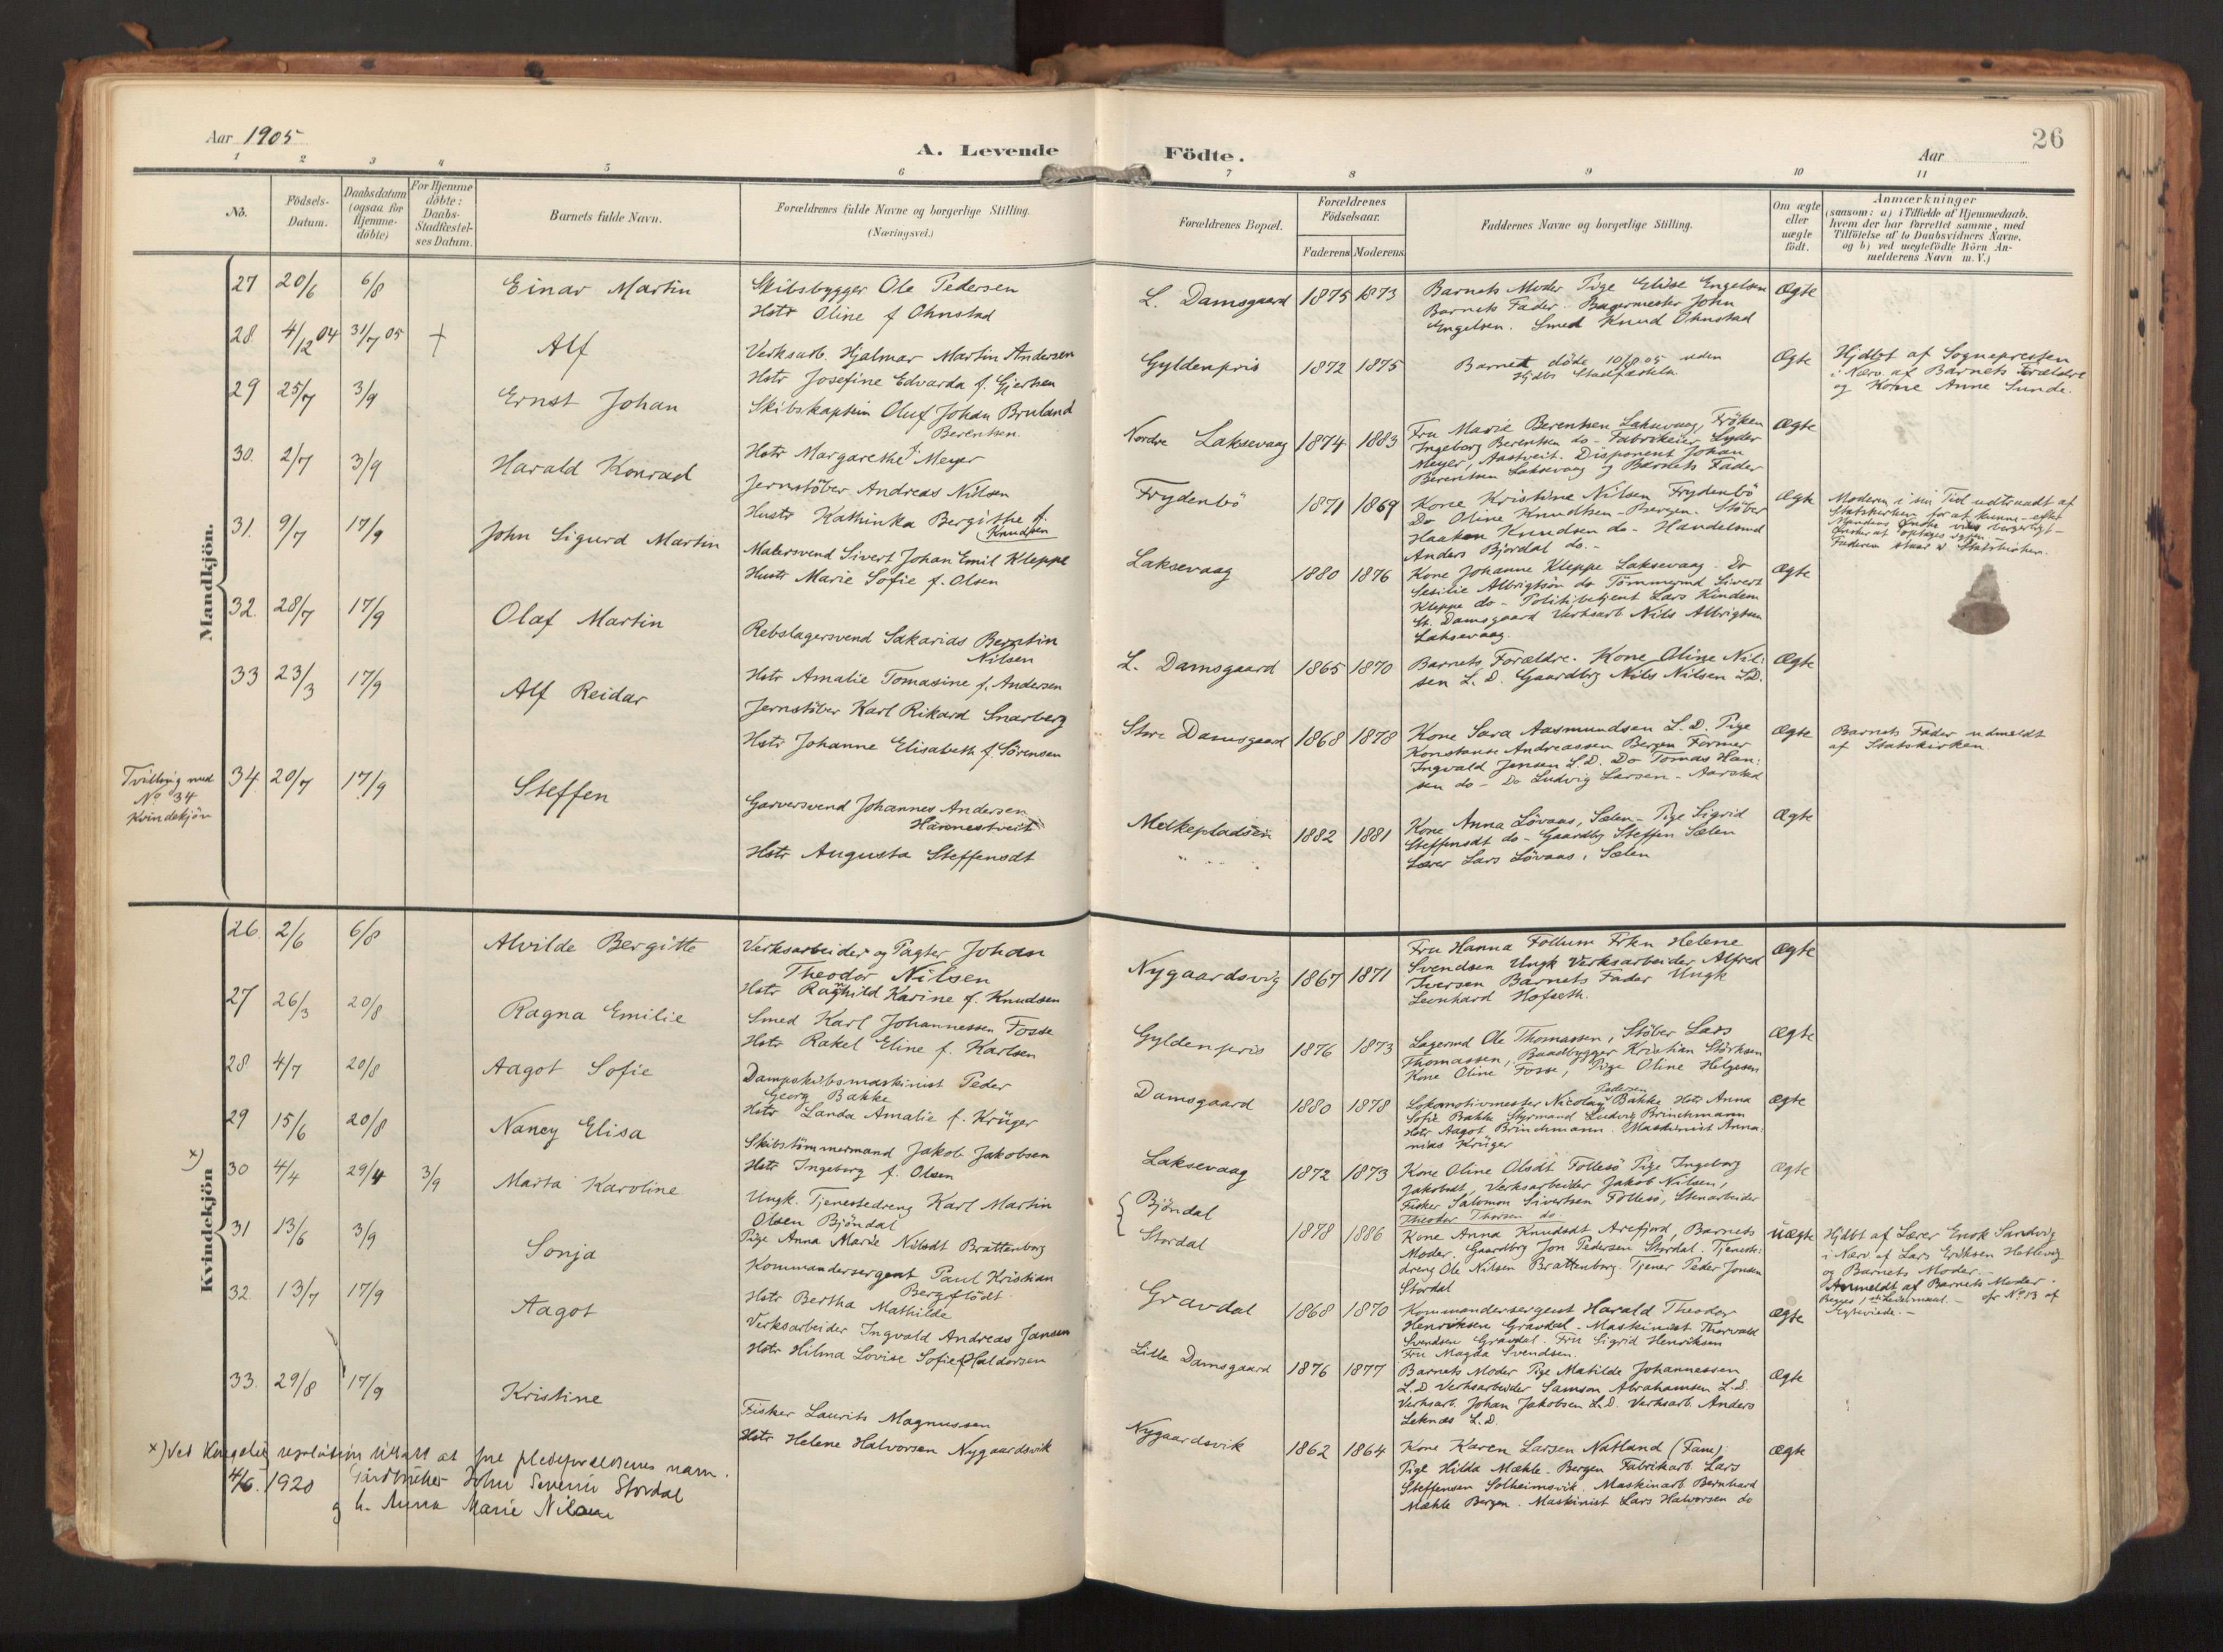 Aar 1905
A. Levende Födte.
Aar
26
1 2 3 4 5 6 7 8 9 10 11
No.
Födsels-
Datum.
Daabsdatum
(ogsaa for
Hjemme-
döbte)
For Hjemme
döbte:
Daabs-
Stadfæstel-
ses Datum.
Barnets fulde Navn.
Forældrenes fulde Navne og borgerlige Stilling.
(Næringsvei.)
Forældrenes Bopæl.
Forældrenes
Födselsaar.
Faderens Moderens
Faddernes Navne og borgerlige Stilling.
Om ægte
eller
uægte
födt.
Anmærkninger
(saasom: a) i Tilfælde af Hjemmedaab,
hvem der har forrettet samme, med
Tilföielse af to Daabsvidners Navne,
og b) ved uegtefödte Börn An-
melderens Navn m.V.)
Mandkjön.
27 20/6 6/8 Einar Martin
Skibsbygger Ole Pedersen
Hstr Oline f Ohnstad
L. Damsgaard 1875 1873
Barnets Moder Pige Elise Engelsen
Barnets Fader. Bagermester John
Engelsen. Smed Knud Ohnstad
Ægte
28. 4/12 04 31/7 05 + Alf
Verksarb. Hjalmar Martin Andersen
Hstr Josefine Edvarda f. Gjertsen
Gyldenpris 1872 1875
Barnet döde 10/8 05 uden
Hjdbs Stadfæstelse
Ægte
Hjdbt af Sognepresten
i Nærv. af Barnets Forældre
og Kone Anne Sunde.
29 25/7 3/9 Ernst Johan
Skibskaptein Oluf Johan Bruland
Berentsen.
Hstr Margarethe f. Meyer
Nordre Laksevaag 1874 1883
Fru Marie Berentsen Laksevaag, Fröken
Ingeborg Berentsen do - Fabrikeier Lyder
Meyer, Aastveit. Disponent Johan
Berentsen Laksevaag og Barnets Fader
Ægte
30. 2/7 3/9 Harald Konrad
Jernstöber Andreas Nilsen
Hustr Kathinka Bergithe f.
Knudsen
Frydenbö 1871 1869
Kone Kristine Nilsen Frydenbö
Do Oline Knudtsen - Bergen. Stöber
Haakon Knudsen do - Handelsmd
Anders Bjordal do. -
Ægte
Moderen i sin Tid udtraadt af
Statskirken for at kunne - efter
Mandens Ønske vies borgerligt -
Ønsker at optages igjen -
Faderen staar i Statskirken.
31. 9/7 17/9 John Sigurd Martin
Malersvend Sivert Johan Emil Kleppe
Hustr Marie Sofie f. Olsen
Laksevaag 1880 1876
Kone Johanne Kleppe Laksevaag. Do
Sesilie Albrigtsön do Tömmermd Sivert
Kleppe do - Politibetjent Lars Kindem
St. Damsgaard Verksarb Nils Albrigtsen
Laksevaag.
Ægte
32. 28/7 17/9 Olaf Martin
Rebslagersvend Sakarias Berntin
Nilsen
Hstr Amalie Tomasine f. Andersen
L. Damsgaard 1865 1870
Barnets Forældre. Kone Oline Nil:
sen L. D. Gaardbrg Nils Nilsen L.D.
Ægte
33 23/3 17/9 Alf Reidar
Jernstöber Karl Rikard Snarberg
Hstr Johanne Elisabeth f. Sörensen
Store Damsgaard 1868 1878
Kone Sara Aasmundsen L. D. Pige
Konstanse Andreassen Bergen Former
Ingvald Jensen L. D. Do Tomas Han:
sen do - Do Ludvig Larsen - Aarstad
Ægte
Barnets Fader udmeldt
af Statskirken.
Tvilling med
No 34
Kvindekjön
34. 20/7 17/9 Steffen
Garversvend Johannes Andersen
Hannestveit
Hstr Augusta Steffensdt
Melkepladsen 1882 1881
Kone Anna Lövaas, Sælen - Pige Sigrid
Steffensdt do - Gaardbg Steffen Sælen
Lærer Lars Lövaas, Sælen
Ægte
Kvindekjön
26. 2/6 6/8 Alvilde Bergitte
Verksarbeider og Pagter Johan
Theodor Nilsen
Hstr Raghild Karine f. Knudsen
Nygaardsvig 1867 1871
Fru Hanna Follum Frkn Helene
Svendsen Ungk Verksarbeider Alfred
Iversen Barnets Fader Ungk
Leonhard Hofseth.
Ægte
27 26/3 20/8 Ragna Emilie
Smed Karl Johannessen Fosse
Hstr Rakel Eline f. Karlsen
Gyldenpris 1876 1873
Lagermd Ole Thomassen, Stöber Lars
Thomassen, Baadbygger Kristian Störksen
Kone Oline Fosse, Pige Oline Helgesen
Ægte
28. 4/7 20/8 Aagot Sofie
Dampskibsmaskinist Peder
Georg Bakke
Hstr Landa Amalie f. Krüger
Damsgaard 1880 1878
Pedersen
Lokomotivmester Nicolay Bakke Hstr Anna
Sofie Bakke Styrmand Ludvig Brinchmann
Hstr Aagot Brinchmann. Maskinist Anna:
nias Krüger
Ægte
29 15/6 20/8 Nancy Elisa
Skibstömmermand Jakob Jakobsen
Hstr Ingeborg f. Olsen
Laksevaag 1872 1873
Kone Oline Olsdt Follesö Pige Ingeborg
Jakobsdt, Verksarbeider Jakob Nilsen,
Fisker Salomon Sivertsen Follesö, Stenarbeider
Theodor Thorsen do.
Ægte
x)
30 4/4 29/4 3/9 Marta Karoline
Ungk. Tjenestedreng Karl Martin
Olsen Bjöndal
Pige Anna Marie Nilsdt Brattenborg
Bjöndal
Stordal 1878 1886
Kone Anna Knudsdt Arefjord, Barnets
Moder. Gaardbrg Jon Pedersen Stordal. Tjeneste:
dreng Ole Nilsen Brattenborg. Tjener Peder Jonsen
Stordal
Uægte
Hjdbt af Lærer Enok Sandvig
i Nærv. af Lars Eriksen Hetlevig
og Barnets Moder. -
Anmeldt af Barnets Moder.
31 13/6 3/9 Sonja
Kommandersergent Paul Kristian
Bergflödt
Hstr Bertha Mathilde
Gravdal 1868 1870
Kommandersergent Harald Theodor
Henriksen Gravdal - Maskinist Thorvald
Svendsen Gravdal. Fru Sigrid Henriksen
Fru Magda Svendsen.
Ægte
32. 13/7 17/9 Aagot
Verksarbeider Ingvald Andreas Jansen
Hstr Hilma Lovise Sofie f Haldorsen
Lille Damsgaard 1876 1877
Barnets Moder Pige Matilde Johannessen
L. D. Verksarbeider Samson Abrahamsen L. D.
Verksarb. Johan Jakobsen L. D. Verksarb. Anders
Leknæs L. D.
Ægte
33. 29/8 17/9 Kristine
Fisker Laurits Magnussen
Hstr Helene Halvorsen Nygaardsvik
Nygaardsvik 1862 1864
Kone Karen Larsen Natland (Fam)
Pige Hilda Mæhle. Bergen Fabrikarb Lars
Steffensen Solheimsvik. Maskinarb Bernhard
Mæhle Bergen. Maskinist Lars Halvorsen do
Ægte
x) Ved Kongelig resolution tillatt at före pleieforældrenes navn.
4/6. 1920 Gårdbruker John Severin Stordal
g h. Anna Marie Nilsen